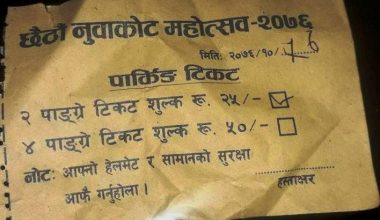 छैठौं नुवाकोट महोत्सव-२०७६
मिति: २०७६/१०/.16
पार्किङ टिकट
२ पाङ्ग्रे टिकट शुल्क रू. २५/-
४ पाङ्ग्रे टिकट शुल्क रू. ५०/-
नोट: आफ्नो हेलमेट र सामानको सुरक्षा
आफै गर्नुहोला । हस्ताक्षर